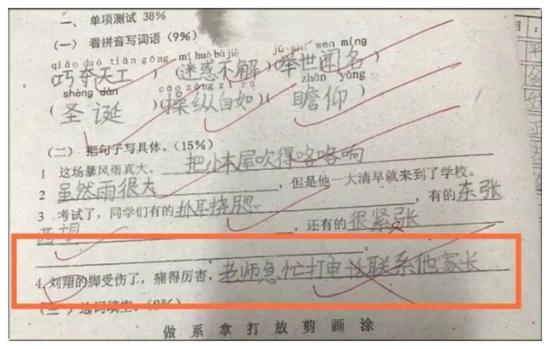 一、单项测试 38%
(一) 看拼音写词语 (9%)
qiǎo duó tiān gōng mí huò bù jiě jǔ shì wén míng
巧夺天工)(迷惑不解)(举世闻名)
shèng dàn cāo zòng zì rú zhān yǎng
(圣诞)(操纵自如)(瞻仰)
(二) 把句子写具体。(15%)
1 这场暴风雨真大。把小木屋吹得咯咯响
2 虽然雨很大,但是他一大清早就来到了学校。
3 考试了,同学们有的抓耳挠腮,有的东张
西望,还有的很紧张
4.刘翔的脚受伤了,痛得厉害,老师急忙打电话联系他家长
(三) 选词填空。
做 系 拿 打 放 剪 画 涂